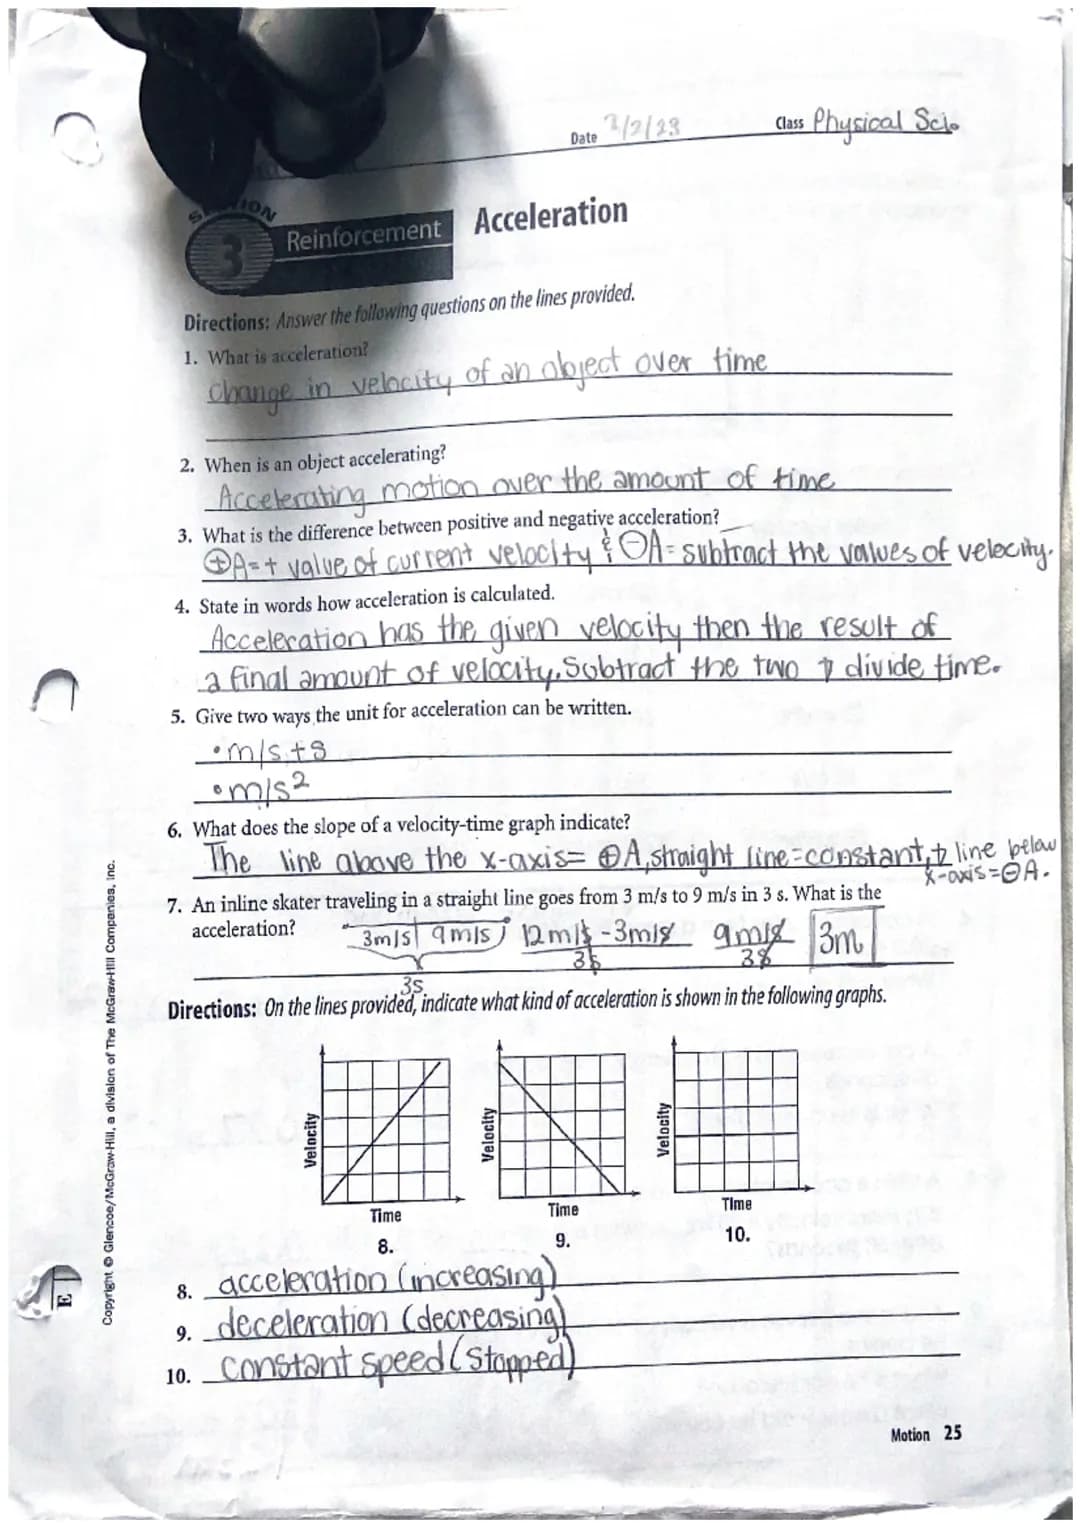 Date 2/2/23 Class Physical Sci.
SECTION
3 Reinforcement Acceleration
Directions: Answer the following questions on the lines provided.
1. What is acceleration?
Change in velocity of an object over time
2. When is an object accelerating?
Accelerating motion over the amount of time
3. What is the difference between positive and negative acceleration?
⊕A=+ value of current velocity & ⊖A= subtract the values of velocity.
4. State in words how acceleration is calculated.
Acceleration has the given velocity then the result of
a final amount of velocity. Subtract the two & divide time.
5. Give two ways the unit for acceleration can be written.
•m/s÷s
•m/s²
6. What does the slope of a velocity-time graph indicate?
The line above the x-axis= ⊕A, straight line=constant, & line below
x-axis=⊖A.
7. An inline skater traveling in a straight line goes from 3 m/s to 9 m/s in 3 s. What is the
acceleration?
3m/s+ 9m/s 12m/s -3m/s 9m/s 3m
3s 3s
3s
Directions: On the lines provided, indicate what kind of acceleration is shown in the following graphs.
Velocity Velocity Velocity
Time Time Time
8. 9. 10.
8. acceleration (increasing)
9. deceleration (decreasing)
10. constant speed (stopped)
Motion 25
Copyright © Glencoe/McGraw-Hill, a division of The McGraw-Hill Companies, Inc.
E